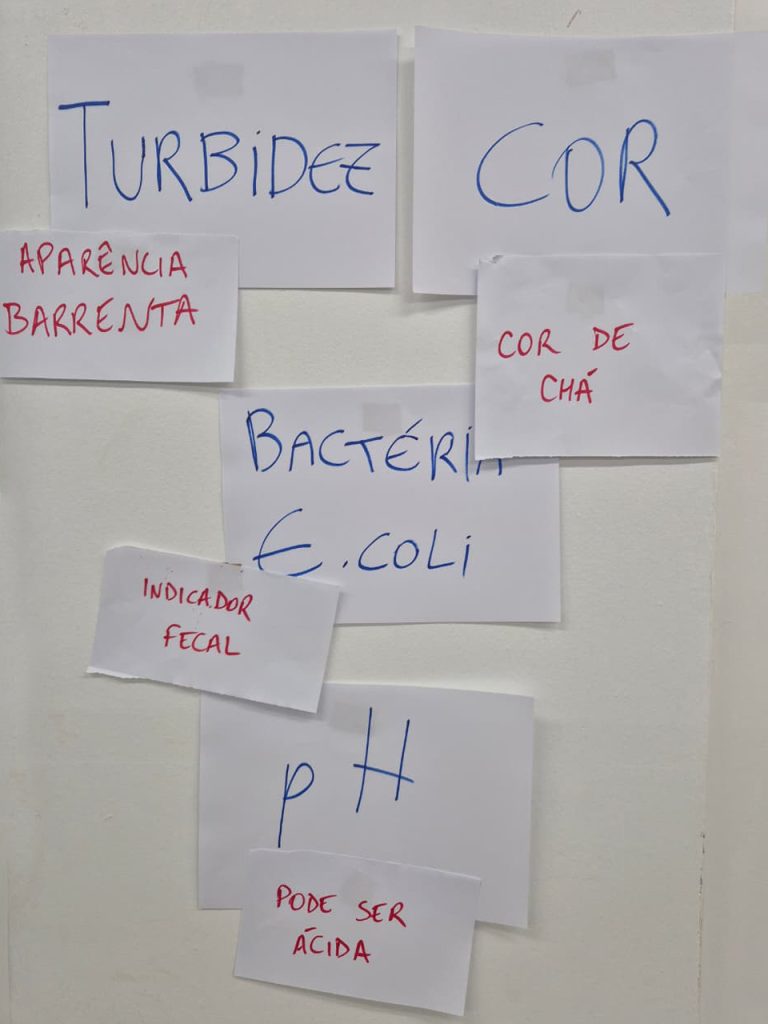 TURBIDEZ
APARÊNCIA
BARRENTA
COR
COR DE
CHÁ
BACTÉRIA
E.COLI
INDICADOR
FECAL
pH
PODE SER
ÁCIDA